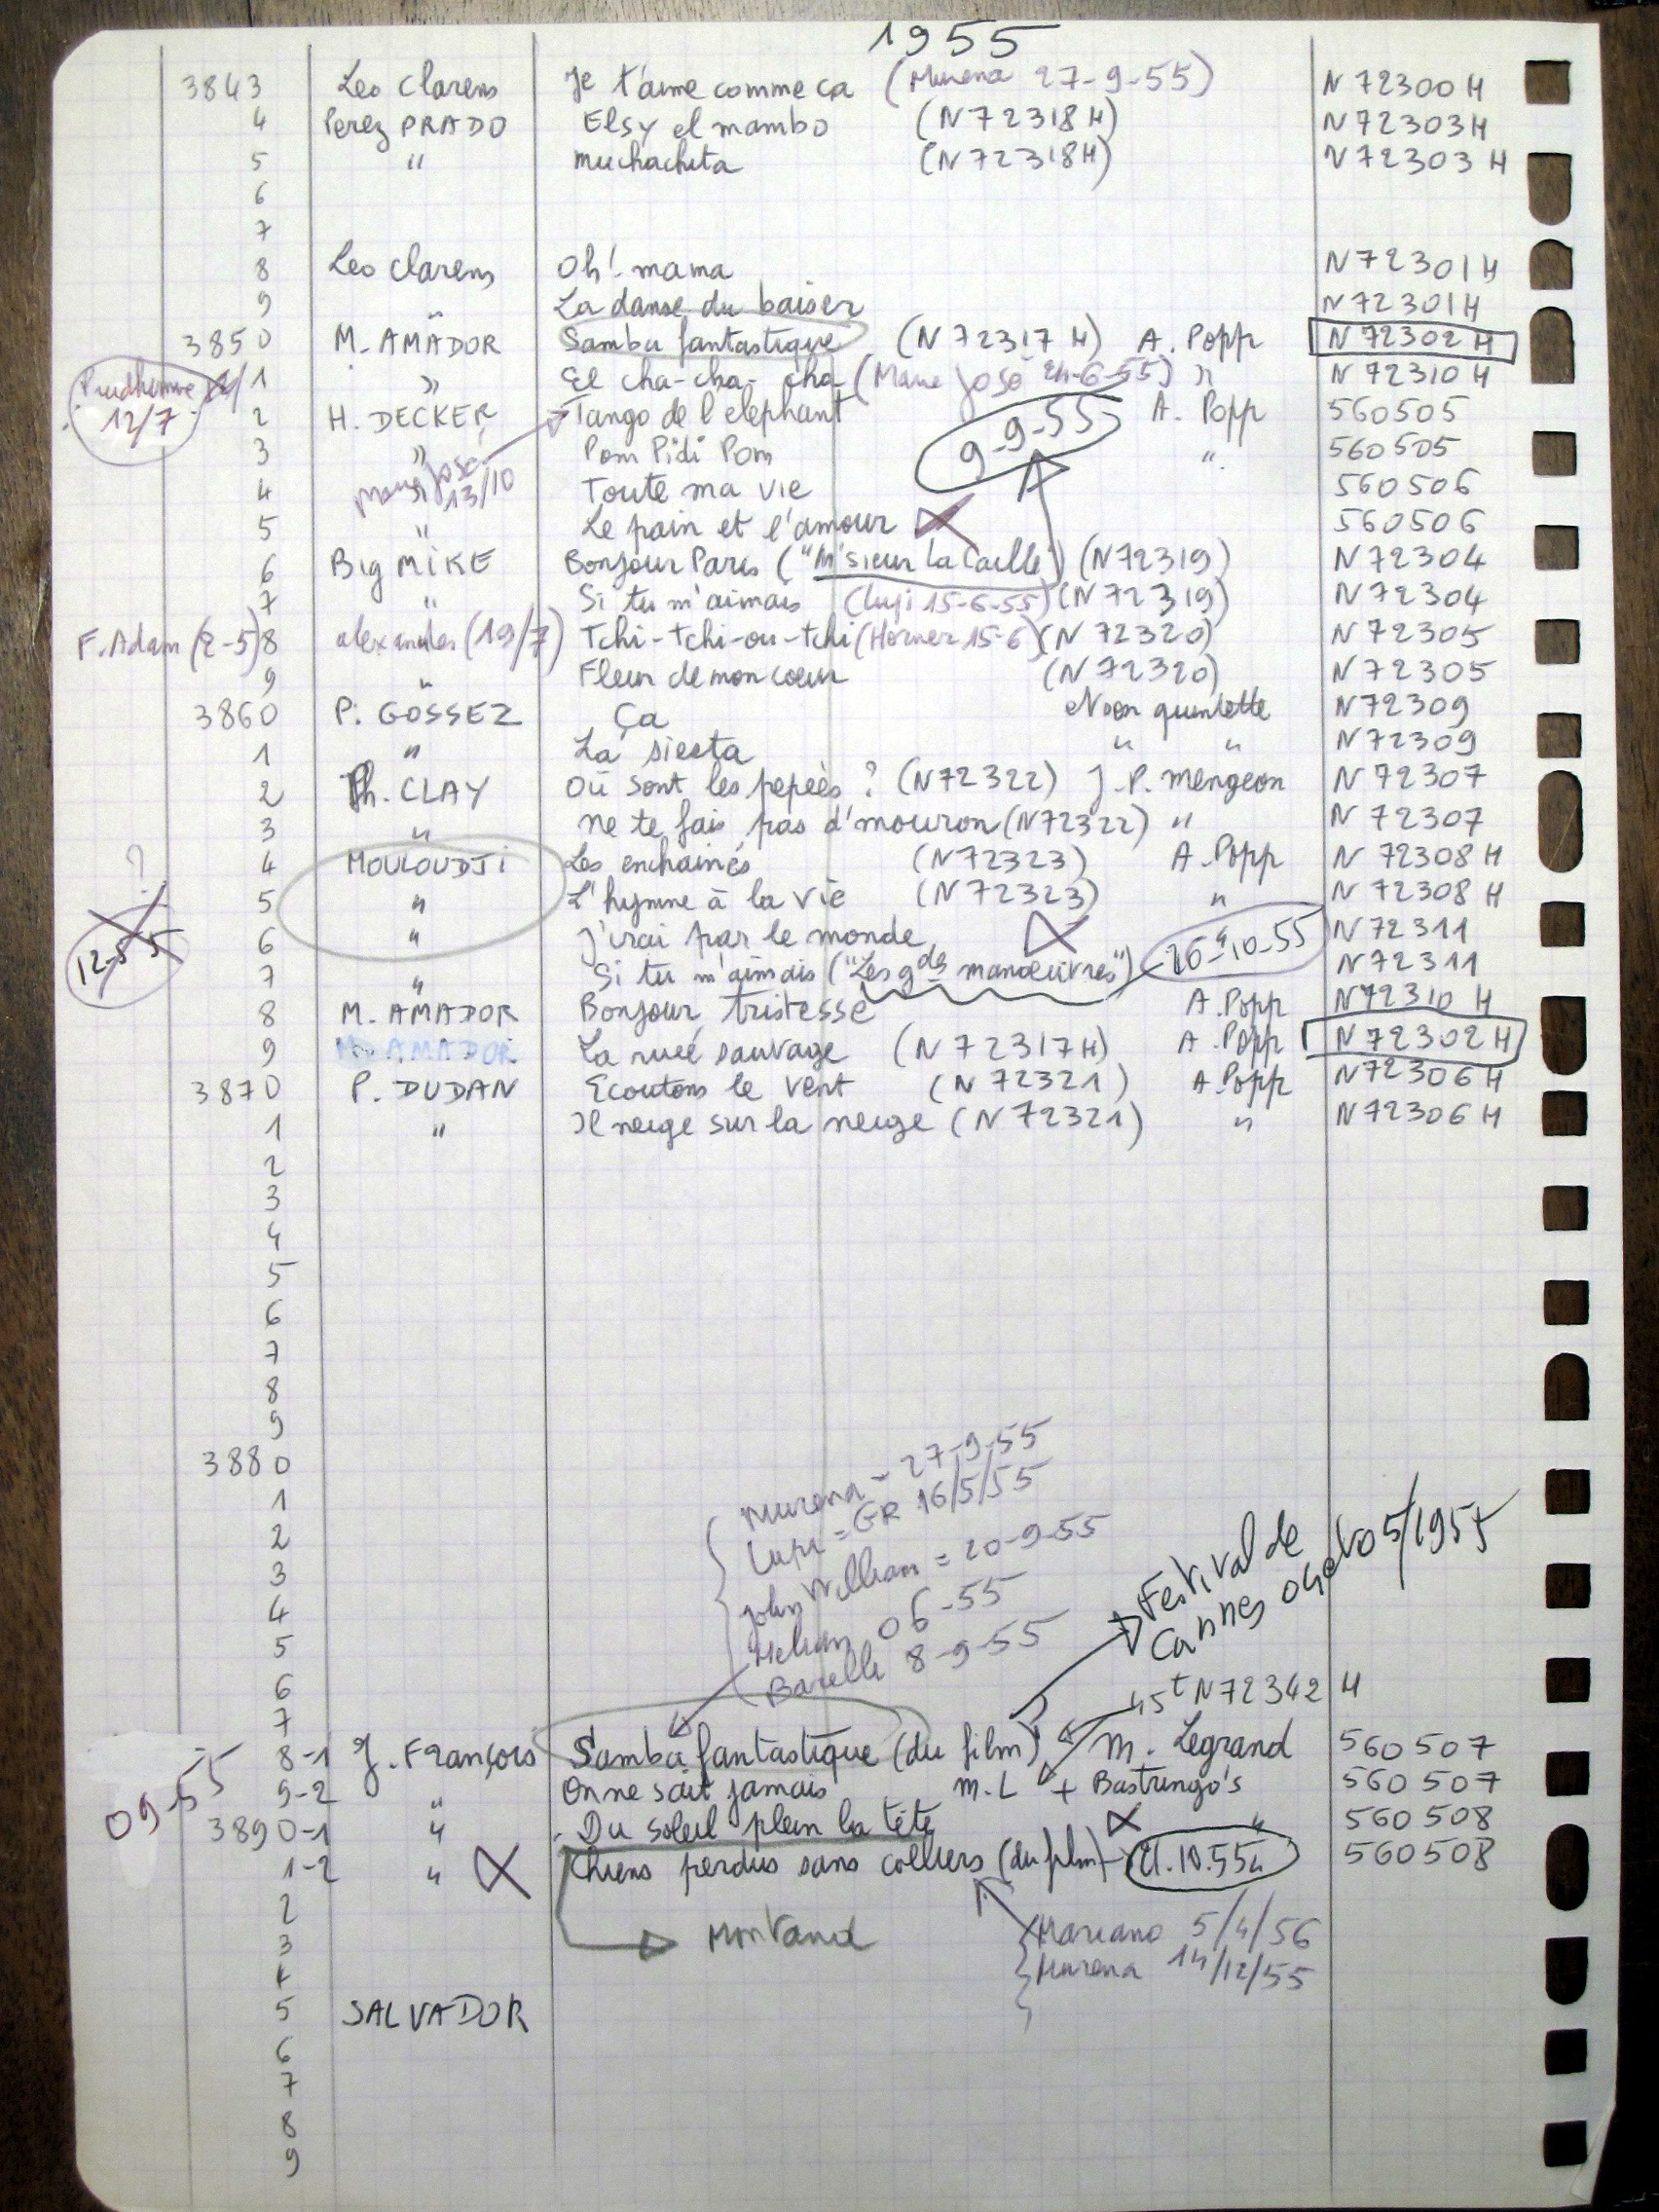 1955
3843 Leo Clarens Je t'aime comme ça (Murena 27-9-55) N 72300 H
4 Perez PRADO Elsy el mambo (N 72318 H) N 72303 H
5 " muchachita (N 72318 H) N 72303 H
6
7
8 Leo Clarens Oh! mama N 72301 H
9 " La danse du baiser N 72301 H
3850 M. AMADOR Samba fantastique (N 72317 H) A. Popp N 72302 H
Prudhomme 12/7
1 " El cha-cha-cha (Marie José 24-6-55) " N 72310 H
2 H. DECKER Tango de l'elephant A. Popp 560505
9-9-55
3 " Pom Pidi Pom " 560505
Marie José 13/10
4 " Toute ma vie 560506
5 " Le pain et l'amour 560506
6 Big MIKE Bonjour Paris ("M'sieur La Caille") (N 72319) N 72304
7 " Si tu m'aimais (Lupi 15-6-55) (N 72319) N 72304
F. Adam (2-5) 8 (19/7) Tchi-tchi-ou-tchi (Horner 15-6) (N 72320) N 72305
9 " Fleur de mon coeur (N 72320) N 72305
3860 P. GOSSEZ Ça Noon quintette N 72309
1 " La siesta " " N 72309
2 Ph. CLAY Où sont les pepées ? (N 72322) J.P. Mengeon N 72307
3 " ne te fais pas d'mouron (N 72322) " N 72307
?
4 MOULOUDJI Les enchainés (N 72323) A. Popp N 72308 H
5 " L'hymne à la vie (N 72323) " N 72308 H
12-5-55
6 " J'irai par le monde " N 72311
26-10-55
7 " Si tu m'aimais ("Les gdes manoeuvres") N 72311
8 M. AMADOR Bonjour tristesse A. Popp N 72310 H
9 M. AMADOR La rueé sauvage (N 72317 H) A. Popp N 72302 H
3870 P. DUDAN Ecoutons le vent (N 72321) A. Popp N 72306 H
1 " Il neige sur la neige (N 72321) " N 72306 H
2
3
4
5
6
7
8
9
3880
1
2
3
4
5
6
7
Murena = 27-9-55
Lupi = GR 16/5/55
John William = 20-9-55
06-55
Barelli 8-9-55
Festival de
Cannes 05/1955
45t N 72342 H
09-55
8-1 J. François Samba fantastique (du film) M. Legrand 560507
9-2 " On ne sait jamais M.L + Bastringo's 560507
3890-1 " Du soleil plein la tête " 560508
1-2 " Chiens perdus sans colliers (du film) 21.10.55 560508
2
3 Montand
Mariano 5/4/56
Murena 14/12/55
4
5 SALVADOR
6
7
8
9